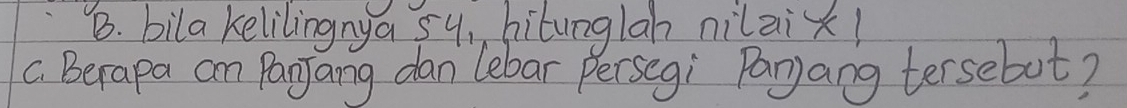 B. bila kelilingnya 54, hitunglah nilai x!
C. Berapa cm Panjang dan lebar Persegi Panjang tersebut?